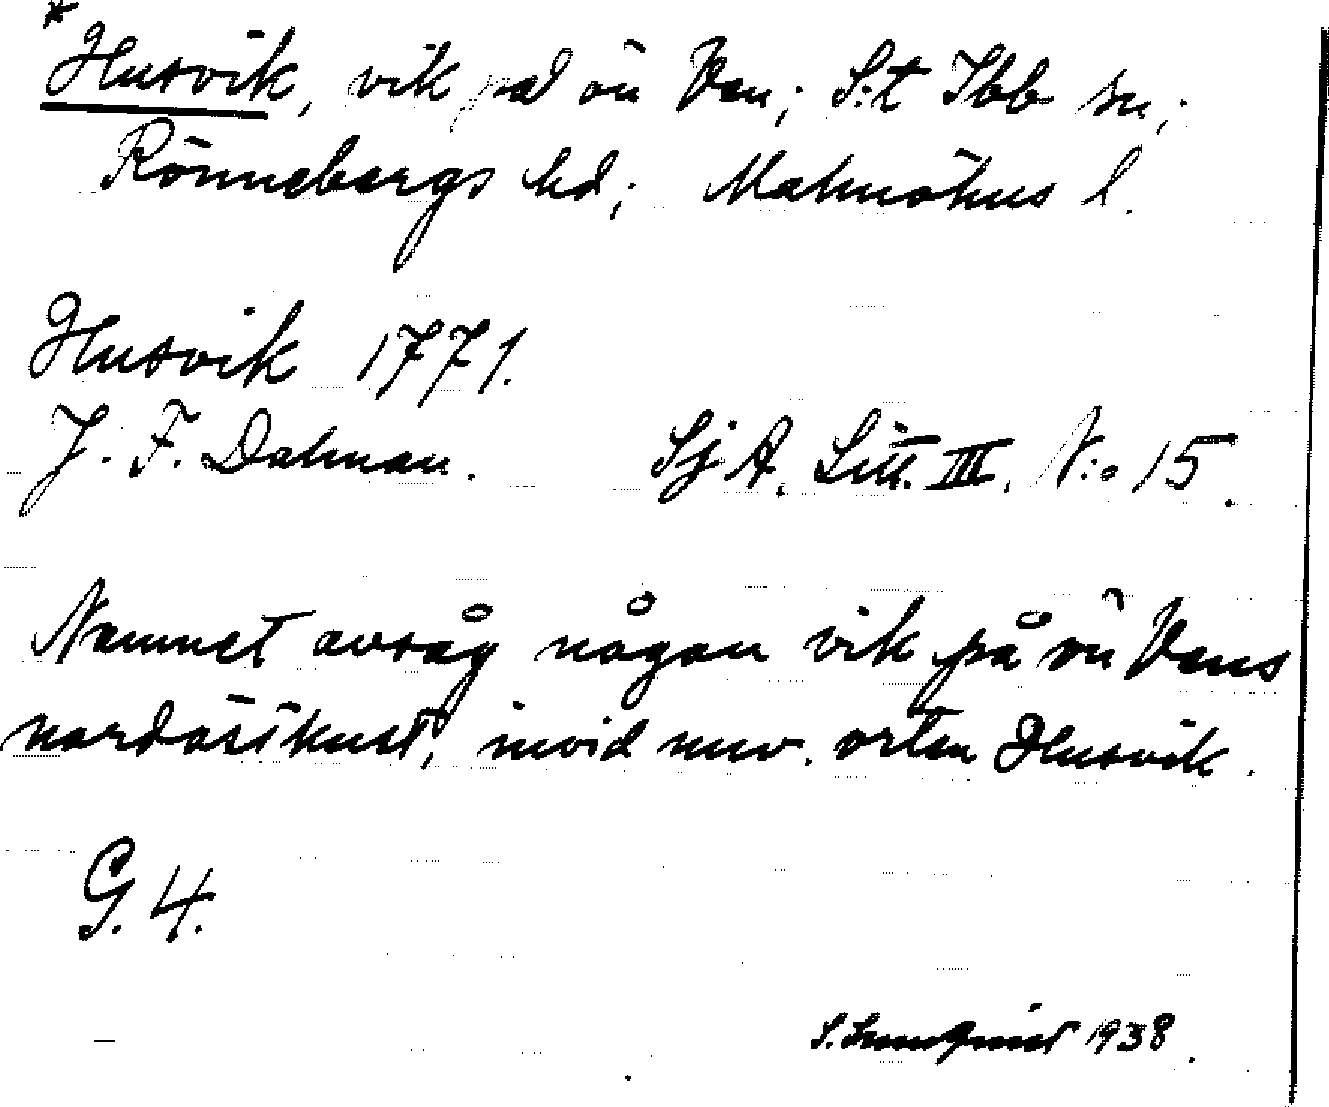 *Husvik, vik på ön Ven; S:t Ibb sn;
Rönnebergs hd; Malmöhus l.
Husvik 1771.
J. F. Dalman. Sj A. Litt. III. N:o 15.
Namnet avsåg någon vik på ön Vens
nordöstkust, invid nuv. orten Husvik.
G. 4.
S. 1938.